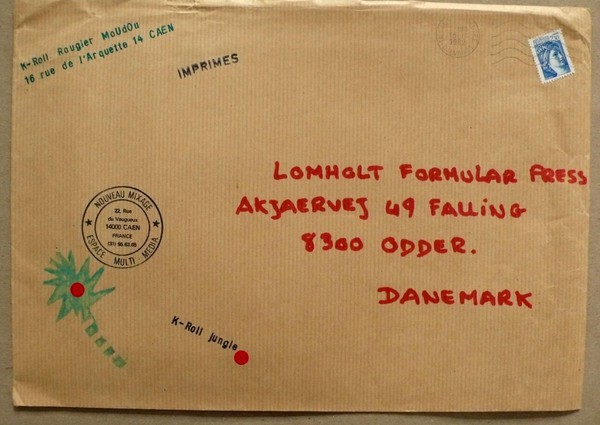 K-Roll Rougier MoUdOu
16 rue de l'Arquette 14 CAEN
IMPRIMES
LOMHOLT FORMULAR PRESS
AKJAERVEJ 49 FALLING
8300 ODDER.
DANEMARK
NOUVEAU MIXAGE
22, Rue
du Vaugueux
14000 CAEN
FRANCE
(31) 95.63.05
ESPACE MULTI MEDIA
K-Roll jungle